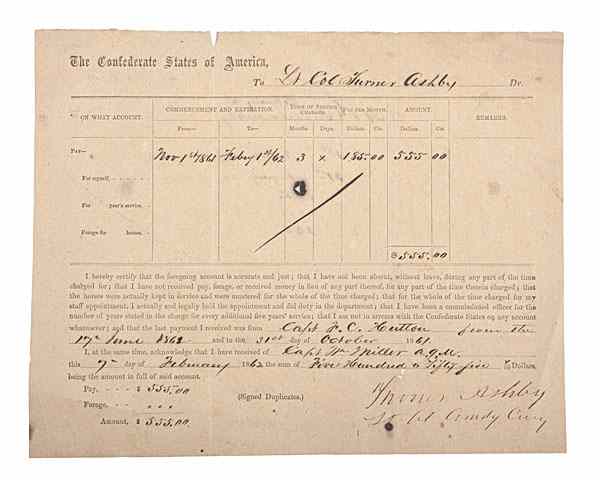 The Confederate States of America,
To Lt Col Turner Ashby Dr.
ON WHAT ACCOUNT. COMMENCEMENT AND EXPIRATION. TIME OF SERVICE CHARGED. PAY PER MONTH. AMOUNT. REMARKS.
From— To— Months. Days. Dollars. Cts. Dollars. Cts.
Pay— Nov 1st 1861 Febry 1st/62 3 x 185.00 555 00
For myself,
For year's service,
Forage for horses,
$555.00
I hereby certify that the foregoing account is accurate and just; that I have not been absent, without leave, during any part of the time
charged for; that I have not received pay, forage, or received money in lieu of any part thereof, for any part of the time therein charged; that
the horses were actually kept in service and were mustered for the whole of the time charged; that for the whole of the time charged for my
staff appointment, I actually and legally held the appointment and did duty in the department; that I have been a commissioned officer for the
number of years stated in the charge for every additional five years' service; that I am not in arrears with the Confederate States on any account
whatsoever; and that the last payment I received was from Capt F. C. Hutton from the
17th June 1861 and to the 31st day of October 1861.
I, at the same time, acknowledge that I have received of Capt Wm Miller a.q.m.
this 7th day of February 1862 the sum of Five Hundred & Fifty five Dollars,
being the amount in full of said account.
Pay, $555.00
Forage,
(Signed Duplicates.)
Amount, $555.00
Turner Ashby
Lt Col Comdg Cavy